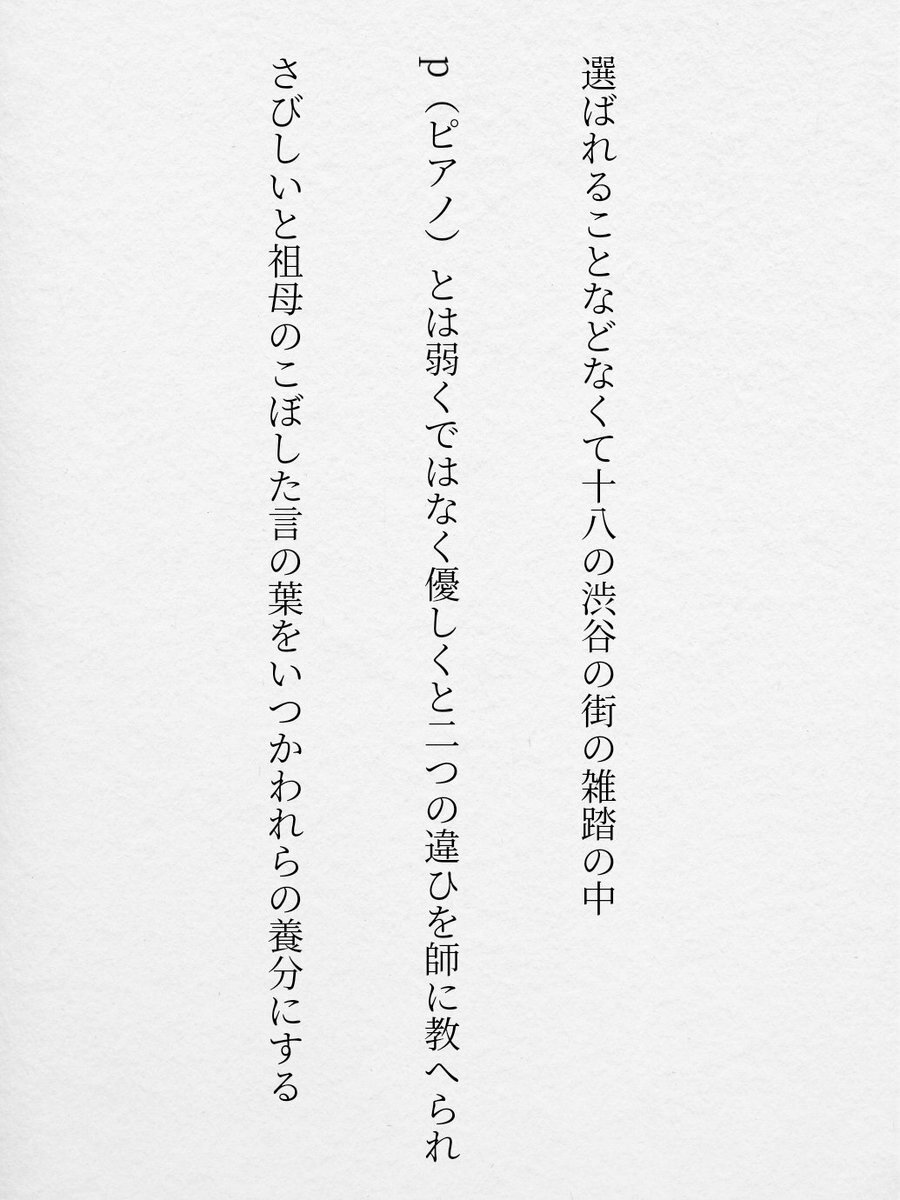 選ばれることなどなくて十八の渋谷の街の雑踏の中
p（ピアノ）とは弱くではなく優しくと二つの違ひを師に教へられ
さびしいと祖母のこぼした言の葉をいつかわれらの養分にする